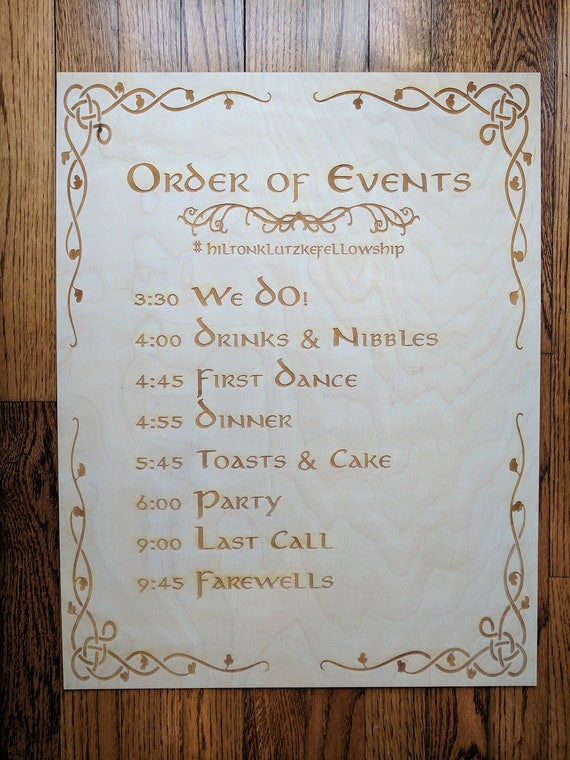 Order of Events
# hiltonklutzkefellowship
3:30 We DO!
4:00 Drinks & Nibbles
4:45 First Dance
4:55 Dinner
5:45 Toasts & Cake
6:00 Party
9:00 Last Call
9:45 Farewells